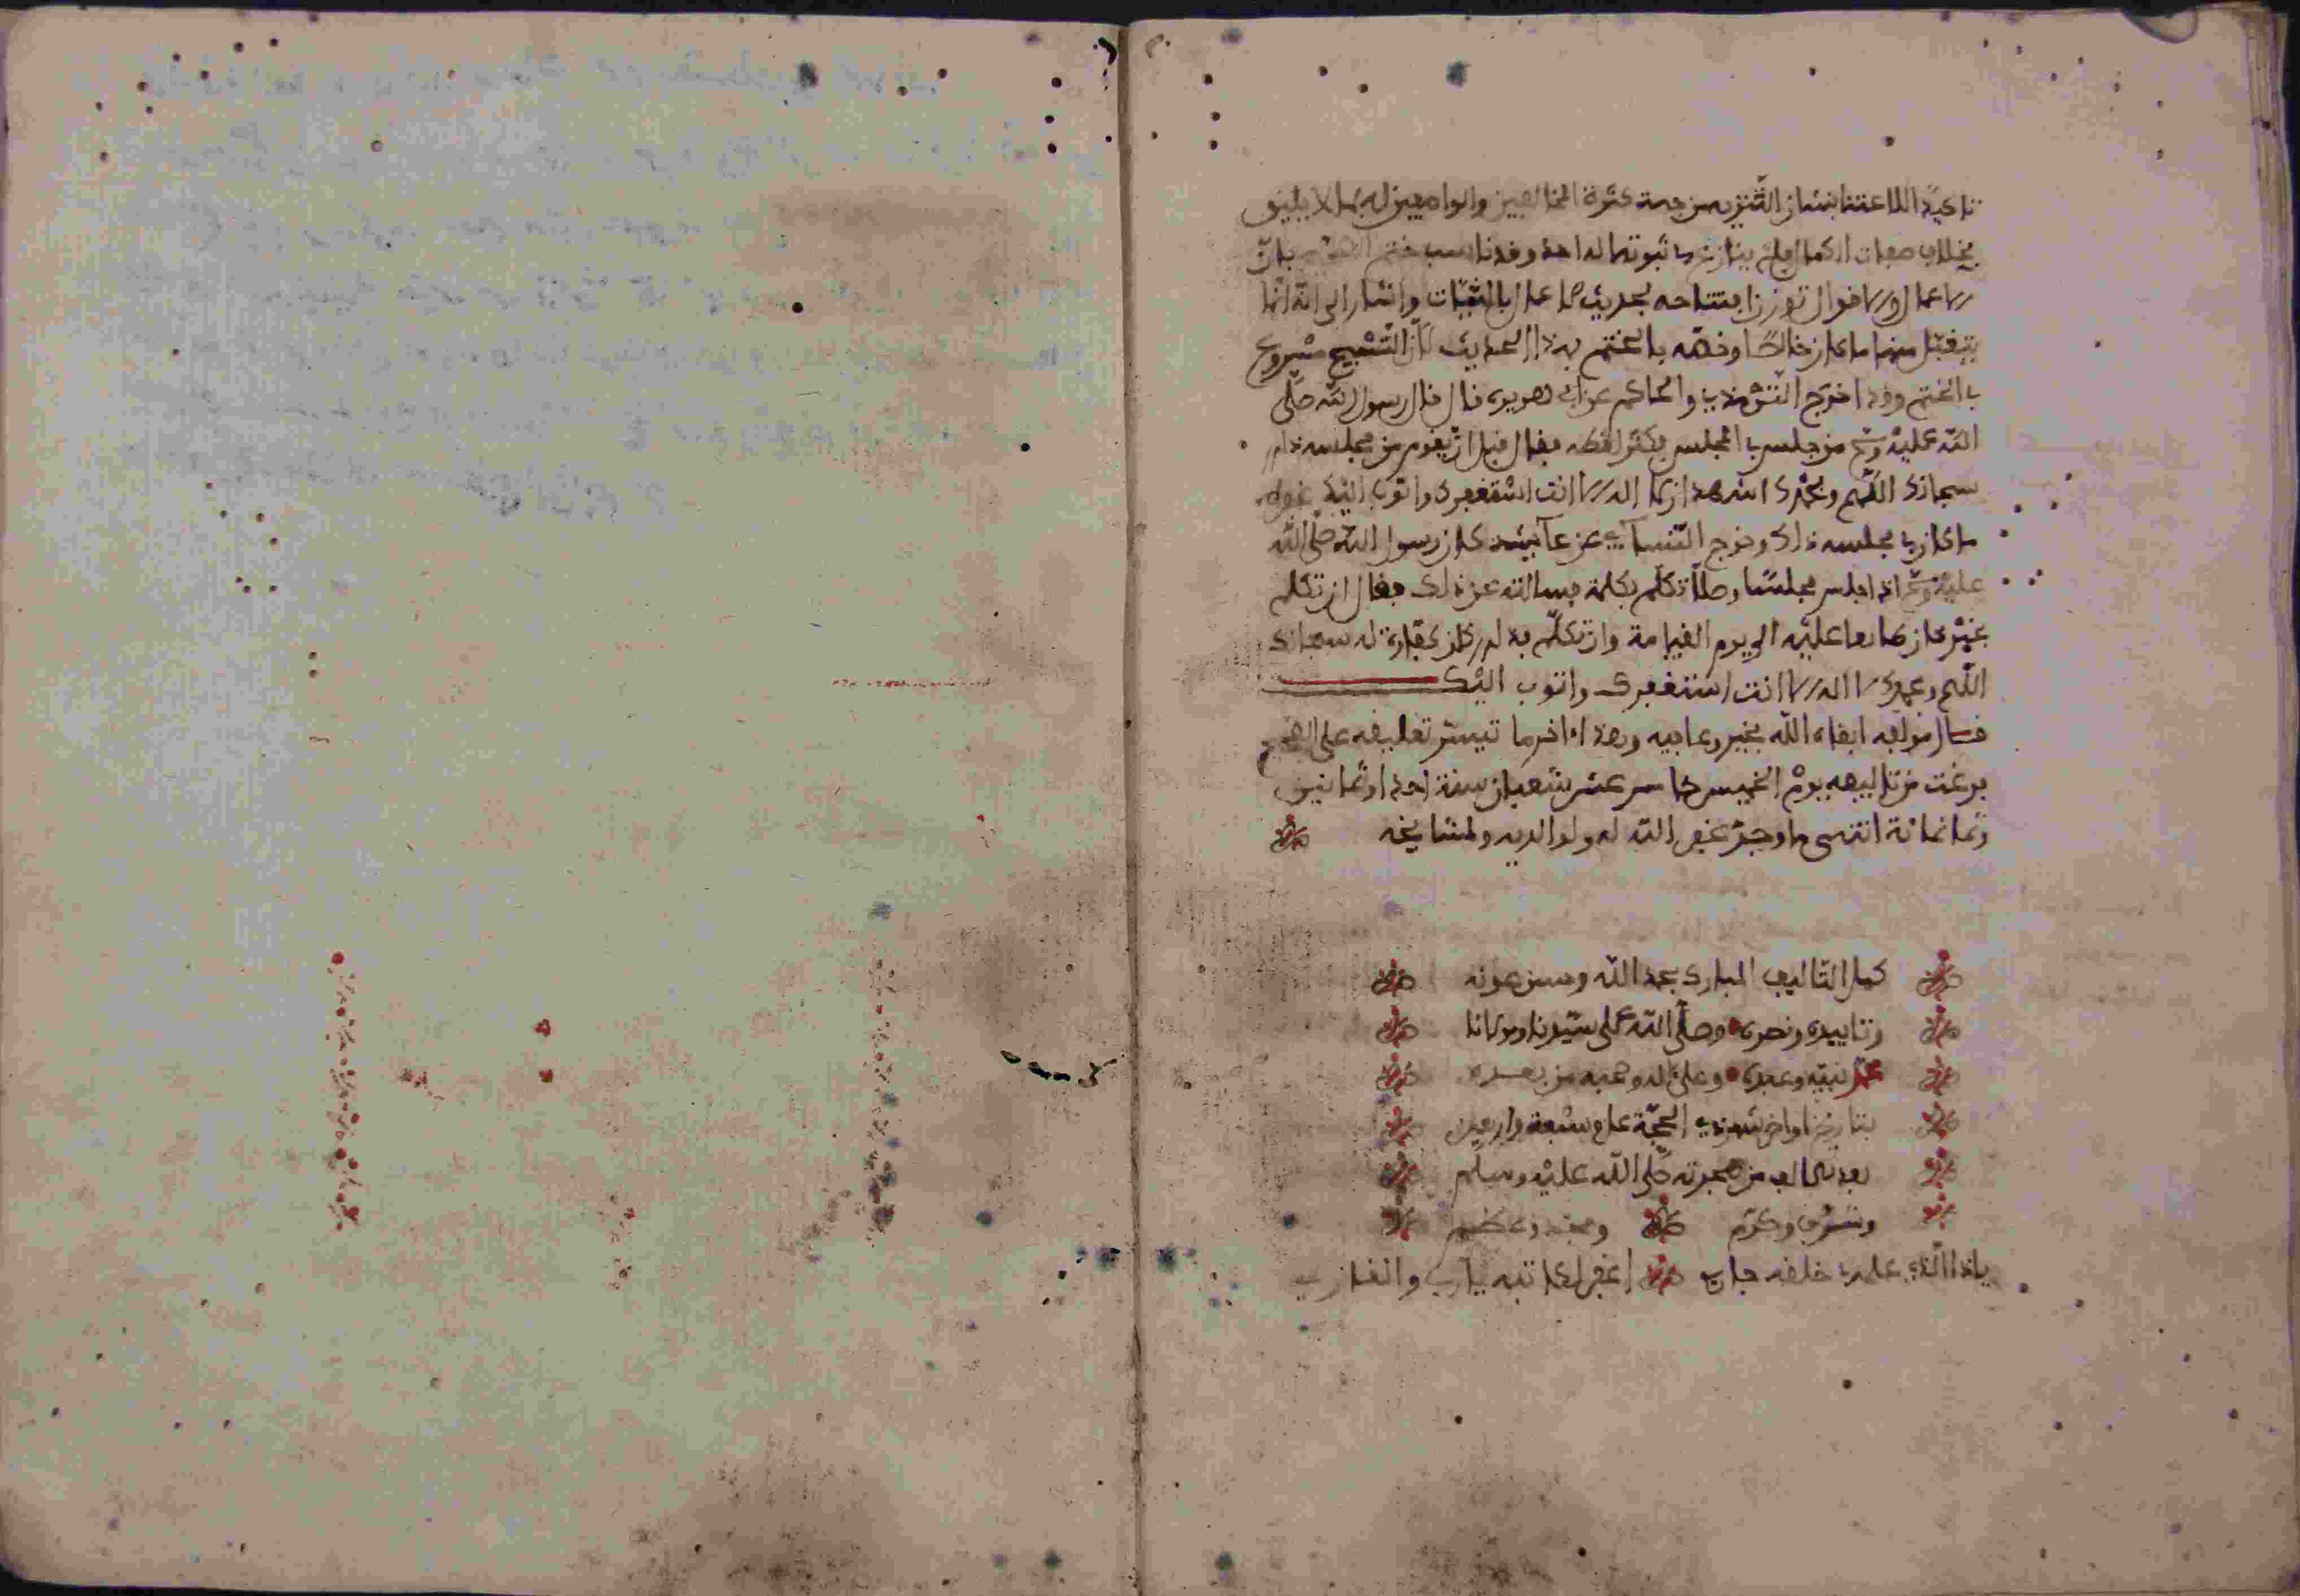 تاكيد الاعتنا بشان التنزيه من جهة كثرة المخالفين والواصفين له بما لا يليق
بخلاف صفات الكمال فلم ينازع في ثبوتها له احد وقد ناسب ختم بان
الاعمال والاقوال توزن افتتاحه بحديث الاعمال بالنيات واشار الى انه انما
يتقبل منها ما كان خالصا وخصه بالختم بهذا الحديث لان التسبيح مشروع
بالختم وقد اخرج الترمذي والحاكم عن ابي هريرة قال قال رسول الله صلى
الله عليه وسلم من جلس في المجلس فكثر لغطه فقال قبل ان يقوم من مجلسه ذلك
سبحانك اللهم وبحمدك اشهد ان لا اله الا انت استغفرك واتوب اليك غفر له
ما كان في مجلسه ذلك وخرج النسآي عن عآئشة كان رسول الله صلى الله
عليه وسلم اذا جلس مجلسا وصلى تكلم بكلمة فسالته عن ذلك فقال ان تكلم
بخير كان طابعا عليه الى يوم القيامة وان تكلم به لشر كان كفارة له سبحانك
اللهم وبحمدك لا اله الا انت استغفرك واتوب اليك
قال مؤلفه ابقاه الله بخير وعافيه وهذا اخر ما تيسر تعليقه على الصحيح
فرغت من تاليفه يوم الخميس خامس عشر شعبان سنة احد وثمانين
وثمانمائة انتهى ما وجد غفر الله له ولوالديه ولمشايخه
كمل التاليف المبارك بحمد الله وحسن عونه
وتاييده ونصره وصلى الله على سيدنا ومولانا
محمد نبيه وعبده وعلى اله وصحبه من بعده
بتاريخ اواخر شهر ذي الحجة عام سبعة واربعين
بعد الالف من هجرته صلى الله عليه وسلم
وشرف وكرم ومجد وعظم
ياذا الذي علمه في خلقه جاري اغفر لكاتبه يارب والقاري